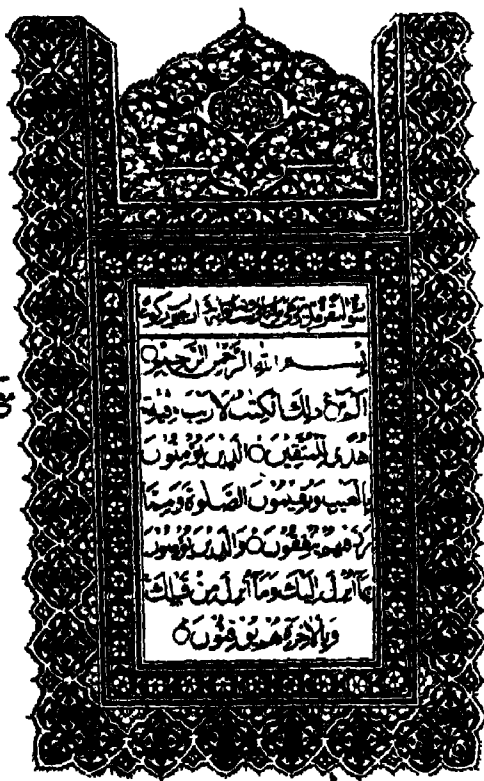 سورة البقرة
بِسْمِ اللهِ الرَّحْمٰنِ الرَّحِيْمِ ○
الٓمّٓ ۚ ذٰلِكَ الْكِتٰبُ لَا رَيْبَ ۛ فِيْهِ ۛ
هُدًى لِّلْمُتَّقِيْنَ ○ الَّذِيْنَ يُؤْمِنُوْنَ
بِالْغَيْبِ وَيُقِيْمُوْنَ الصَّلٰوةَ وَمِمَّا
رَزَقْنٰهُمْ يُنْفِقُوْنَ ○ وَالَّذِيْنَ يُؤْمِنُوْنَ
بِمَآ اُنْزِلَ اِلَيْكَ وَمَآ اُنْزِلَ مِنْ قَبْلِكَ
وَبِالْاٰخِرَةِ هُمْ يُوْقِنُوْنَ ○